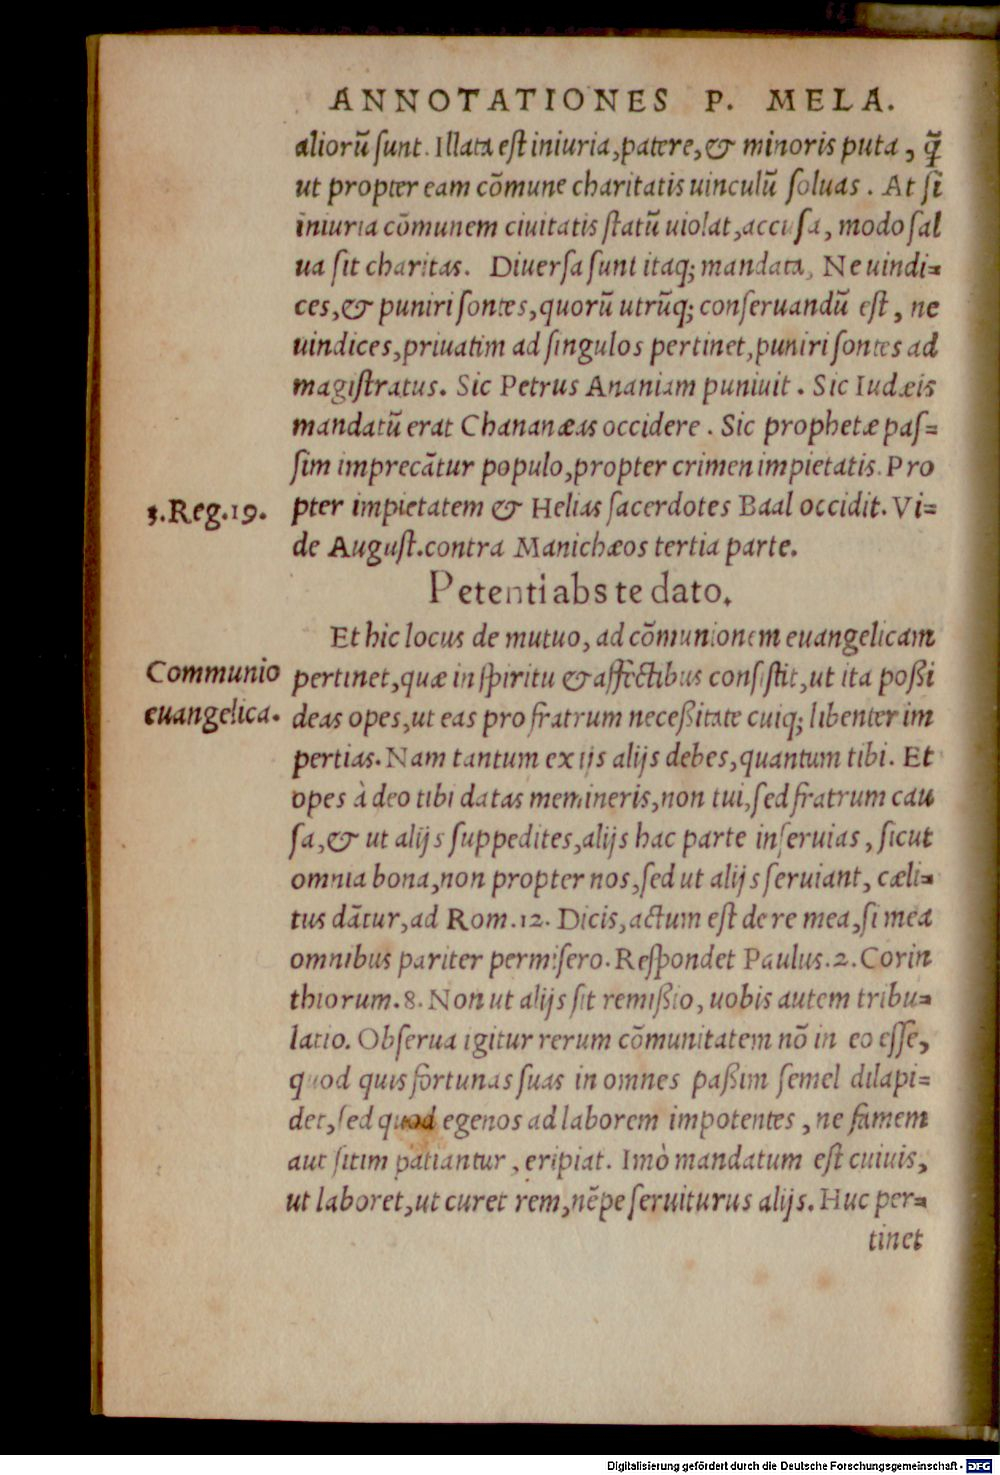 ANNOTATIONES P. MELA.
aliorũ ſunt. Illata eſt iniuria,patere,& minoris puta, q̃
ut propter eam cõmune charitatis uinculũ ſoluas. At ſi
iniuria cõmunem ciuitatis ſtatũ uiolat,accuſa, modo ſal
ua ſit charitas. Diuerſa ſunt itaq; mandata, Ne uindi=
ces,& puniri ſontes,quorũ utrũq; conſeruandũ eſt, ne
uindices,priuatim ad ſingulos pertinet,puniri ſontes ad
magiſtratus. Sic Petrus Ananiam puniuit. Sic Iudæis
mandatũ erat Chananæas occidere. Sic prophetæ paſ=
ſim imprecãtur populo,propter crimen impietatis. Pro
3.Reg.19.
pter impietatem & Helias ſacerdotes Baal occidit. Vi=
de Auguſt.contra Manichæos tertia parte.
Petenti abs te dato.
Et hic locus de mutuo, ad cõmunionem euangelicam
Communio
pertinet,quæ in ſpiritu & affectibus conſiſtit,ut ita poßi
euangelica.
deas opes,ut eas pro fratrum neceßitate cuiq; libenter im
pertias. Nam tantum ex ijs alijs debes,quantum tibi. Et
opes à deo tibi datas memineris,non tui,ſed fratrum cau
ſa,& ut alijs ſuppedites,alijs hac parte inſeruias, ſicut
omnia bona,non propter nos,ſed ut alijs ſeruiant, cæli=
tus dãtur,ad Rom.12. Dicis,actum eſt de re mea,ſi mea
omnibus pariter permiſero. Reſpondet Paulus.2.Corin
thiorum.8. Non ut alijs ſit remißio, uobis autem tribu=
latio. Obſerua igitur rerum cõmunitatem nõ in eo eſſe,
quod quis fortunas ſuas in omnes paßim ſemel dilapi=
det,ſed quod egenos ad laborem impotentes, ne famem
aut ſitim patiantur, eripiat. Imò mandatum eſt cuiuis,
ut laboret,ut curet rem,nẽpe ſeruiturus alijs. Huc per=
tinet
Digitalisierung gefördert durch die Deutsche Forschungsgemeinschaft - DFG